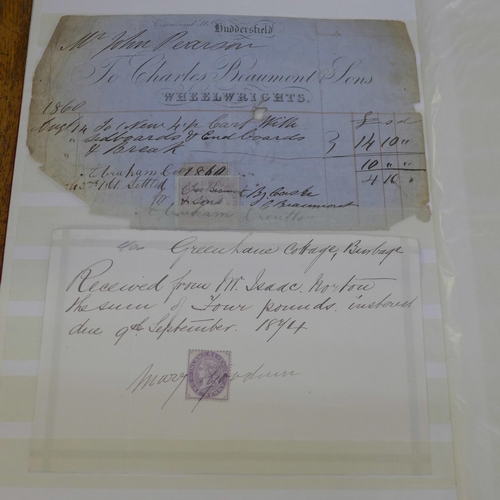 Huddersfield
Mr John Pearson
To Charles Beaumont & Sons
WHEELWRIGHTS.
1860 £ s d
Augt 14 To 1 New Cart With
Sideboards & End boards 14 10 "
& break 10 " "
1860 4 10 "
Settled
& Sons Beaumont
Greenhane Cottage, Burbage
Received from Mr. Isaac Norton
the sum of Four pounds, interest
due 9th September. 1874
Mary Goodwin